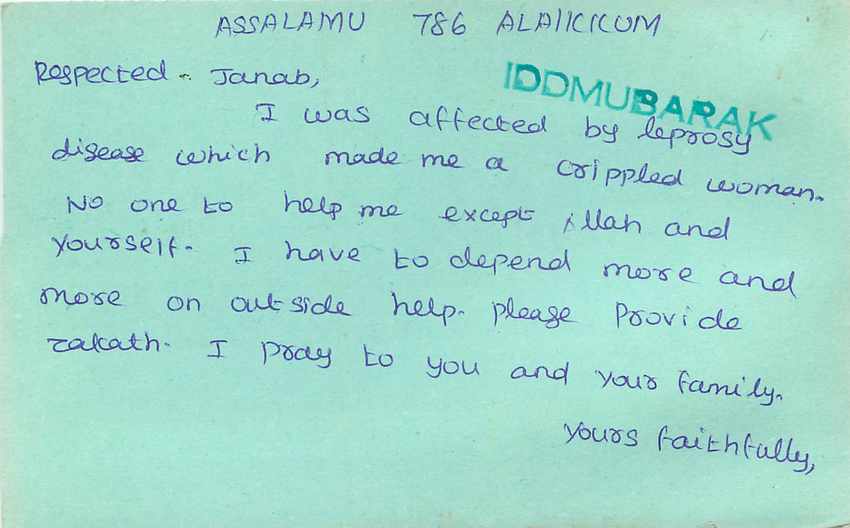 ASSALAMU 786 ALAIKKUM
Respected. Janab,
IDDMUBARAK
I was affected by leprosy
disease which made me a crippled woman.
No one to help me except illah and
yourself. I have to depend more and
more on outside help. please provide
zakath. I pray to you and your family.
yours faithfully,